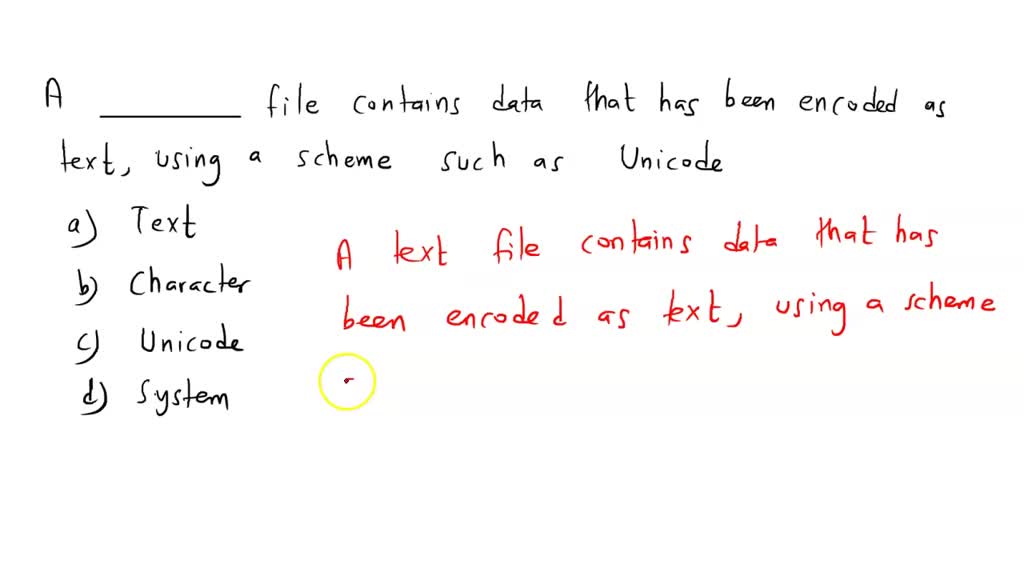 A ________ file contains data that has been encoded as
text, using a scheme such as Unicode
a) Text
b) Character
c) Unicode
d) System
A text file contains data that has
been encoded as text, using a scheme